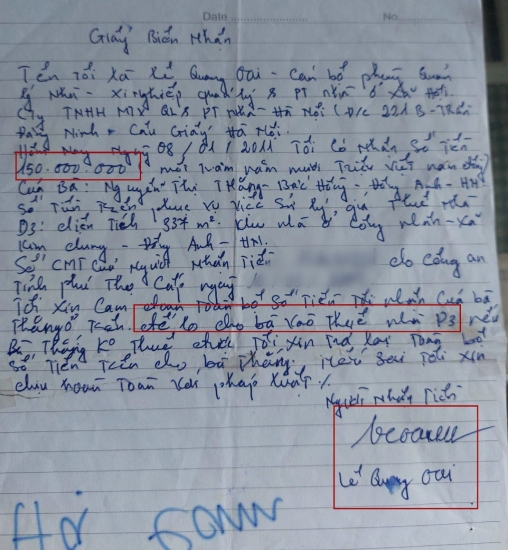 Date No.
Giấy Biên Nhận
Tên Tôi là Lê Quang Oai - Cán bộ phòng Quản
lý Nhà - Xí nghiệp quản lý & PT nhà ở Xã Hội.
Cty TNHH MTV QL & PT nhà Hà Nội (Đ/c 221B - Trần
Đăng Ninh - Cầu Giấy Hà Nội.
Hôm Nay Ngày 08/01/2011 Tôi Có Nhận Số Tiền
150.000.000 một trăm năm mươi Triệu Việt nam đồng
Của Bà: Nguyễn Thị Thắng - Bắc Hồng - Đông Anh - HN
Số Tiền Trên phục vụ việc Xử lý, giá Thuê Nhà
D3: diện Tích 337 m². Khu nhà ở Công nhân - Xã
Kim Chung - Đông Anh - HN.
Số CMT Của Người Nhận Tiền do Công an
Tỉnh Phú Thọ Cấp ngày
Tôi Xin Cam đoan Toàn bộ Số Tiền Tôi nhận Của bà
Thắng ở Trên. để lo cho bà vào Thuê nhà D3 nếu
Bà Thắng Ko Thuê được Tôi Xin Trả lại Toàn bộ
Số Tiền Trên cho bà Thắng. Nếu Sai Tôi xin
chịu hoàn Toàn Với pháp luật ./.
Người Nhận Tiền
Lê Quang Oai